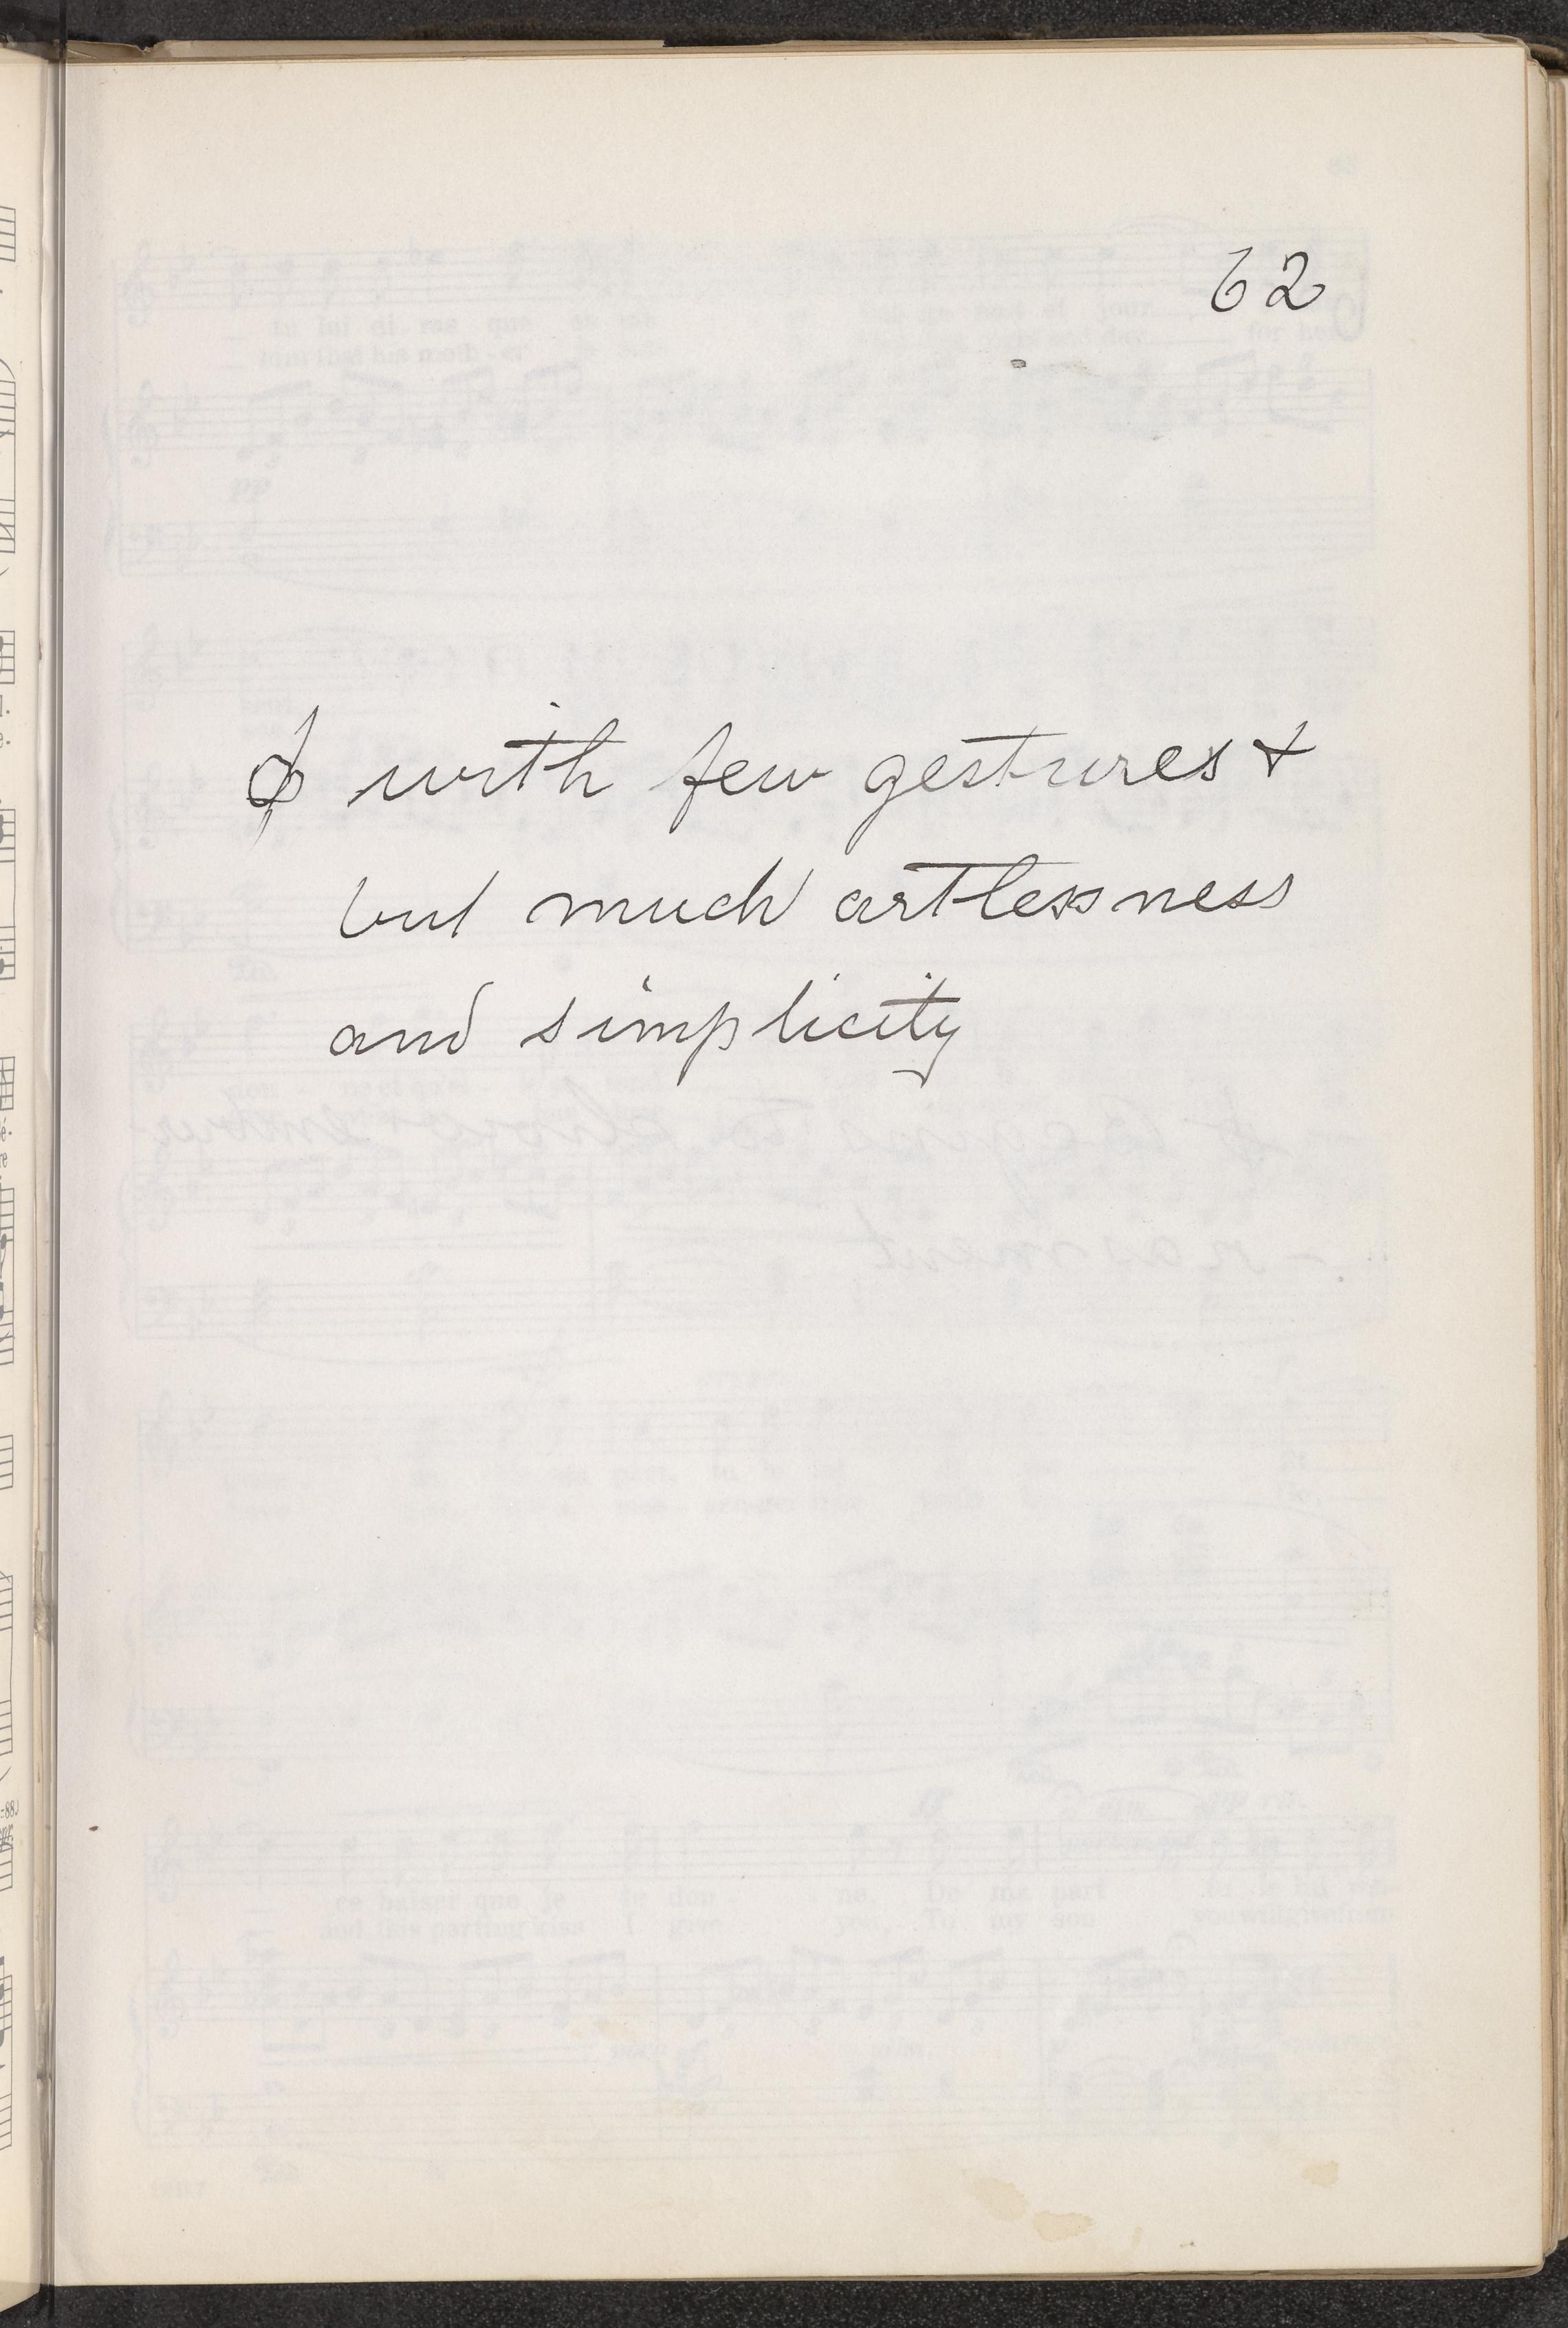 62
ɸ with few gestures &
but much artlessness
and simplicity